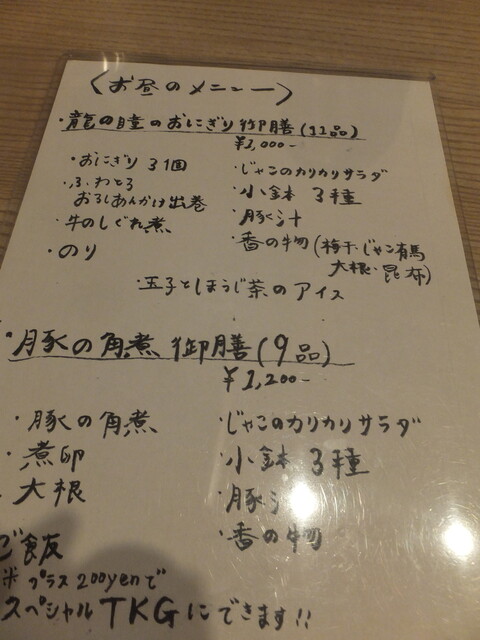 〈お昼のメニュー〉
・龍の瞳のおにぎり御膳(11品)
¥1,000-
・おにぎり 3個
・ふわとろ
おろしあんかけ出巻
・牛のしぐれ煮
・のり
・じゃこのカリカリサラダ
・小鉢 3種
・豚汁
・香の物(梅干・じゃこ有馬
大根・昆布)
・玉子とほうじ茶のアイス
・豚の角煮 御膳(9品)
¥1,200-
・豚の角煮
・煮卵
・大根
ご飯
・じゃこのカリカリサラダ
・小鉢 3種
・豚汁
・香の物
※プラス200yenで
スペシャルTKGにできます!!